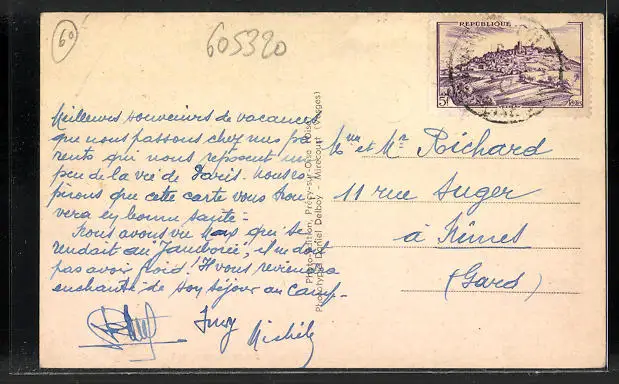 6º
605320
REPUBLIQUE
5F
Meilleurs souvenirs de vacances
que nous passons chez mes pa-
rents qui nous reposent un
peu de la vie de Paris. Nous es-
pérons que cette carte vous trou-
vera en bonne santé -
Nous avons vu Max qui se
rendait au "Jamborée", il ne doit
pas avoir froid! Il vous reviendra
enchanté de son séjour au Camp -
Michèle
Photo-Edition, Précy-sur-Oise (Oise)
Phototypie Daniel Delboy, Mirecourt (Vosges)
Mme et Mr Richard
11 rue Auger
à Nîmes
(Gard)